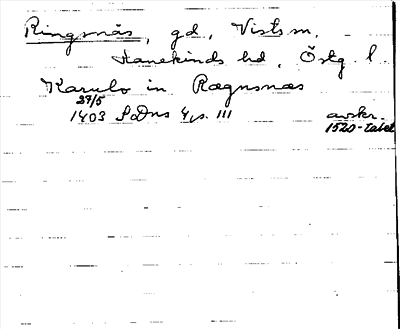 Ringsnäs, gd, Vists sn,
Hanekinds hd, Östg. l
Karulo in Rægnsnæs
29/5
1403 SvDns 4, s. 111 avskr.
1520-talet